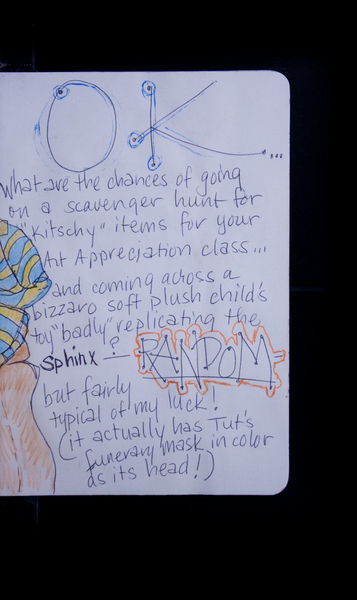 OK...
What are the chances of going
on a scavenger hunt for
"Kitschy" items for your
Art Appreciation class...
and coming across a
bizzaro soft plush child's
toy "badly" replicating the
Sphinx-? RANDOM-
but fairly
typical of my luck!
(it actually has Tut's
funerary mask in color
as its head!)